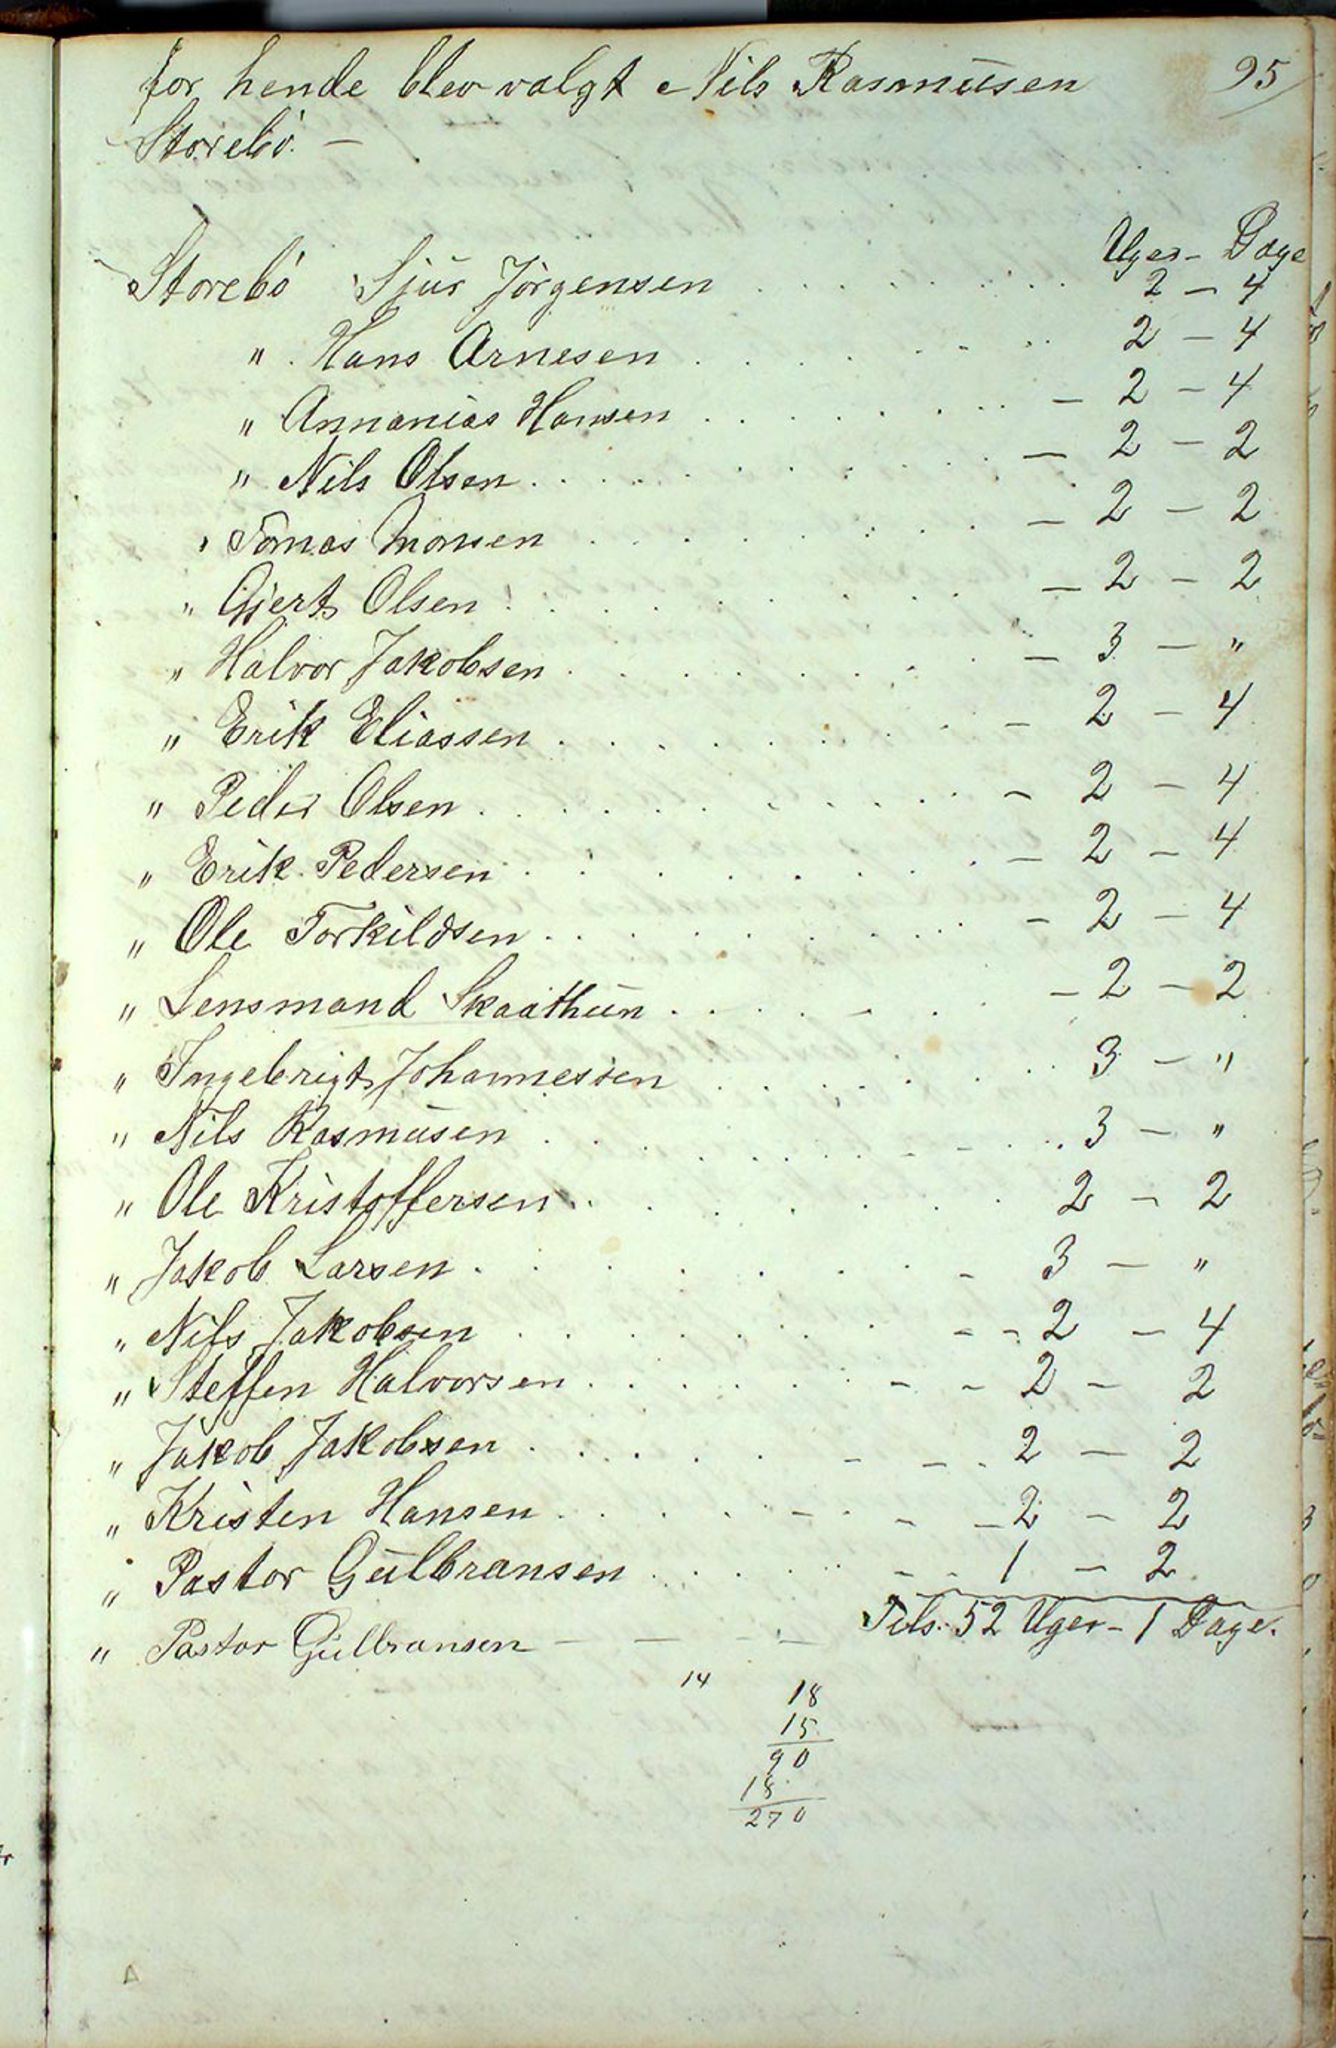 for hende blev valgt Nils Rasmusen 95
Storebö. —
Uger - Dage
Storebö Sjur Jörgensen . . . . . . . . . 2 — 4
" Hans Arnesen . . . . . . . . 2 — 4
" Annanias Hansen . . . . . . . . — 2 — 4
" Nils Olsen . . . . . . . . . — 2 — 2
" Tomas Monsen . . . . . . . — 2 — 2
" Gjert Olsen . . . . . . . . — 2 — 2
" Halvor Jakobsen . . . . . . . — 3 — "
" Erik Eliassen . . . . . . . . — 2 — 4
" Peder Olsen . . . . . . . . . — 2 — 4
" Erik Pedersen . . . . . . . . — 2 — 4
" Ole Torkildsen . . . . . . . . — 2 — 4
" Lensmand Skaathun . . . . . . — 2 — 2
" Ingebrigt Johannessen . . . . . . . 3 — "
" Nils Rasmusen . . . . . . . . 3 — "
" Ole Kristoffersen . . . . . . . 2 — 2
" Jakob Larsen . . . . . . . . — 3 — "
" Nils Jakobsen . . . . . . . — — 2 — 4
" Steffen Halvorsen . . . . . . — — 2 — 2
" Jakob Jakobsen . . . . . — — . 2 — 2
" Kristen Hansen . . . . — . — — 2 — 2
" Pastor Gulbransen . . . . . — — 1 — 2
Tils. 52 Uger - 1 Dage.
" Pastor Gulbransen — — — —
14
18
15
90
18
270